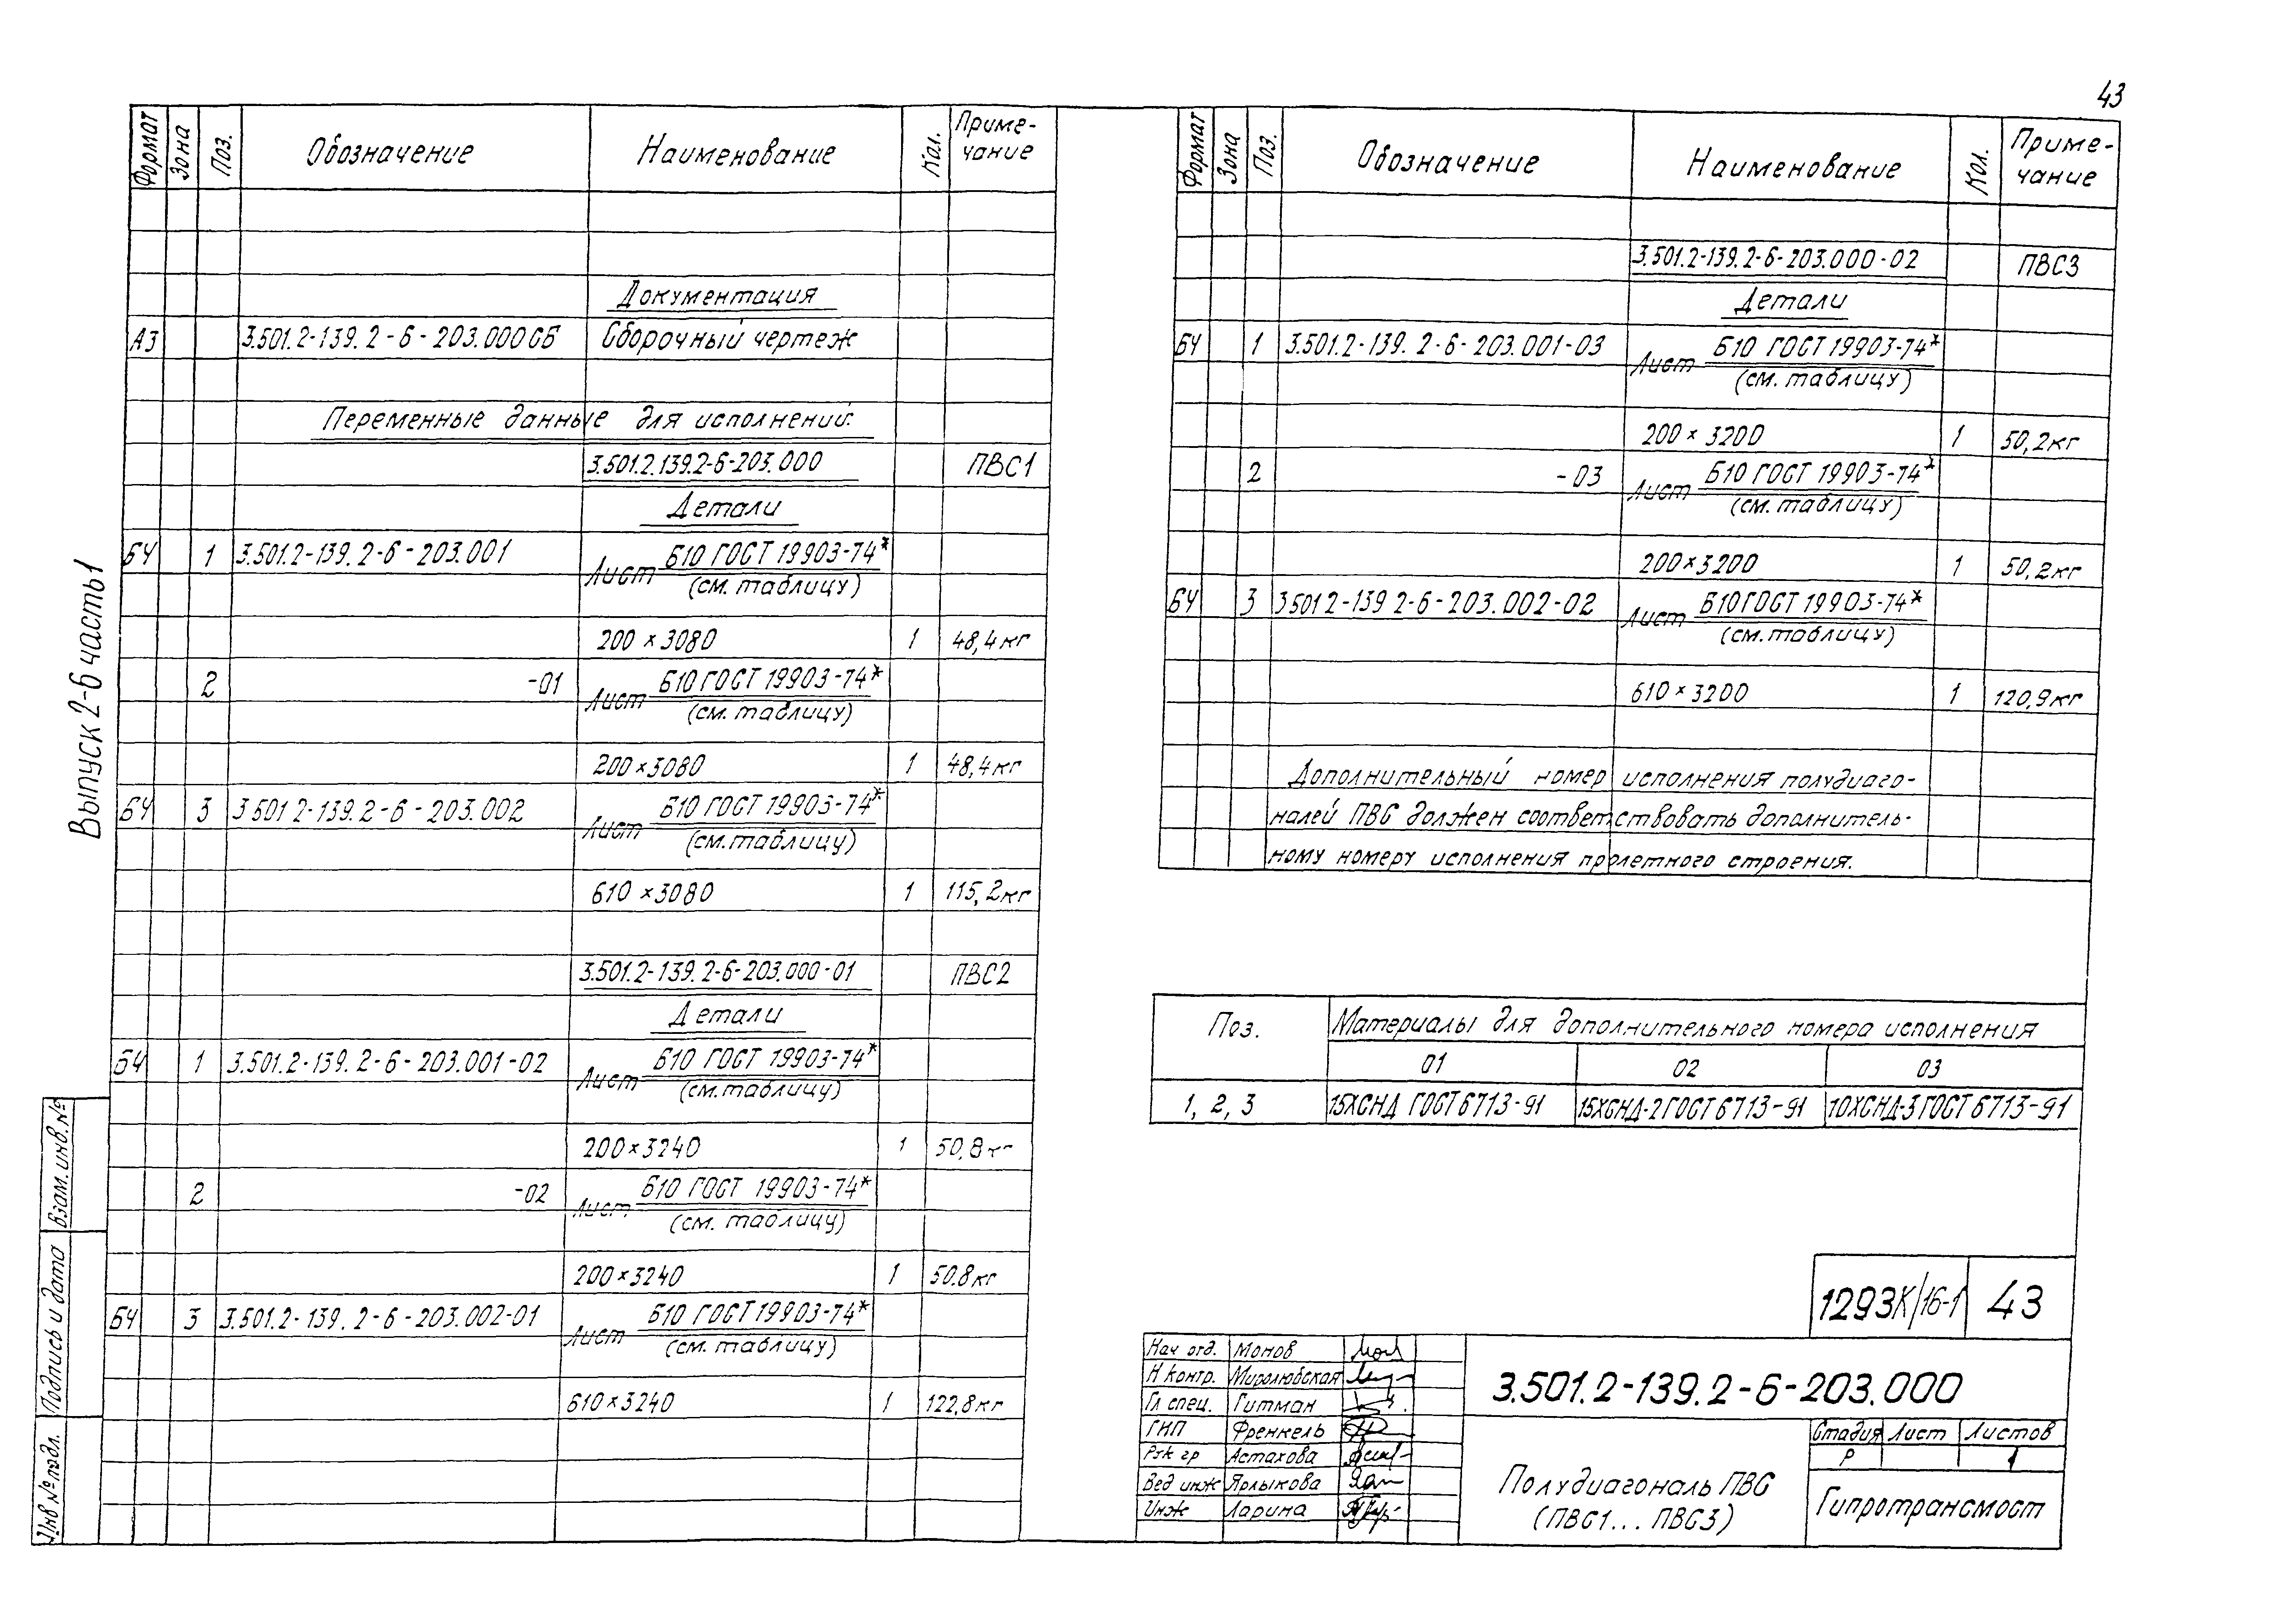 43
Выпуск 2-6 часть 1
Формат Зона Поз. Обозначение Наименование Кол. Приме-
чание
Документация
А3 3.501.2-139.2-6-203.000СБ Сборочный чертеж
Переменные данные для исполнений:
3.501.2.139.2-6-203.000 ПВС1
Детали
БЧ 1 3.501.2-139.2-6-203.001 Лист Б10 ГОСТ 19903-74*
(см. таблицу)
200 × 3080 1 48,4 кг
2 -01 Лист Б10 ГОСТ 19903-74*
(см. таблицу)
200×3080 1 48,4 кг
БЧ 3 3 501 2-139.2-6-203.002 Лист Б10 ГОСТ 19903-74*
(см. таблицу)
610 ×3080 1 115,2кг
3.501.2-139.2-6-203.000-01 ПВС2
Детали
БЧ 1 3.501.2-139.2-6-203.001-02 Лист Б10 ГОСТ 19903-74*
(см. таблицу)
200×3240 1 50,8 кг
2 -02 Лист Б10 ГОСТ 19903-74*
(см. таблицу)
200×3240 1 50.8 кг
БЧ 3 3.501.2-139.2-6-203.002-01 Лист Б10 ГОСТ 19903-74*
(см. таблицу)
610×3240 1 122,8кг
Формат Зона Поз. Обозначение Наименование Кол. Приме-
чание
3.501.2-139.2-6-203.000-02 ПВС3
Детали
БЧ 1 3.501.2-139.2-6-203.001-03 Лист Б10 ГОСТ 19903-74*
(см. таблицу)
200 × 3200 1 50,2кг
2 -03 Лист Б10 ГОСТ 19903-74*
(см. таблицу)
200×3200 1 50,2кг
БЧ 3 3 501 2-139 2-6-203.002-02 Лист Б10 ГОСТ 19903-74*
(см. таблицу)
610 × 3200 1 120,9кг
Дополнительный номер исполнения полудиаго-
налей ПВС должен соответствовать дополнитель-
ному номеру исполнения пролетного строения.
Поз. Материалы для дополнительного номера исполнения
01 02 03
1, 2, 3 15ХСНД ГОСТ 6713-91 15ХСНД-2 ГОСТ 6713-91 10ХСНД-3 ГОСТ 6713-91
Взам. инв. №
Подпись и дата
Инв № подл.
1293К/16-1 43
Нач отд. Монов
Н контр. Миролюбская
Гл спец. Гитман
ГИП Френкель
Рук гр Астахова
Вед инж Ярлыкова
Инж Ларина
3.501.2-139.2-6-203.000
Полудиагональ ПВС
(ПВС1... ПВС3)
Стадия Лист Листов
Р 1
Гипротрансмост